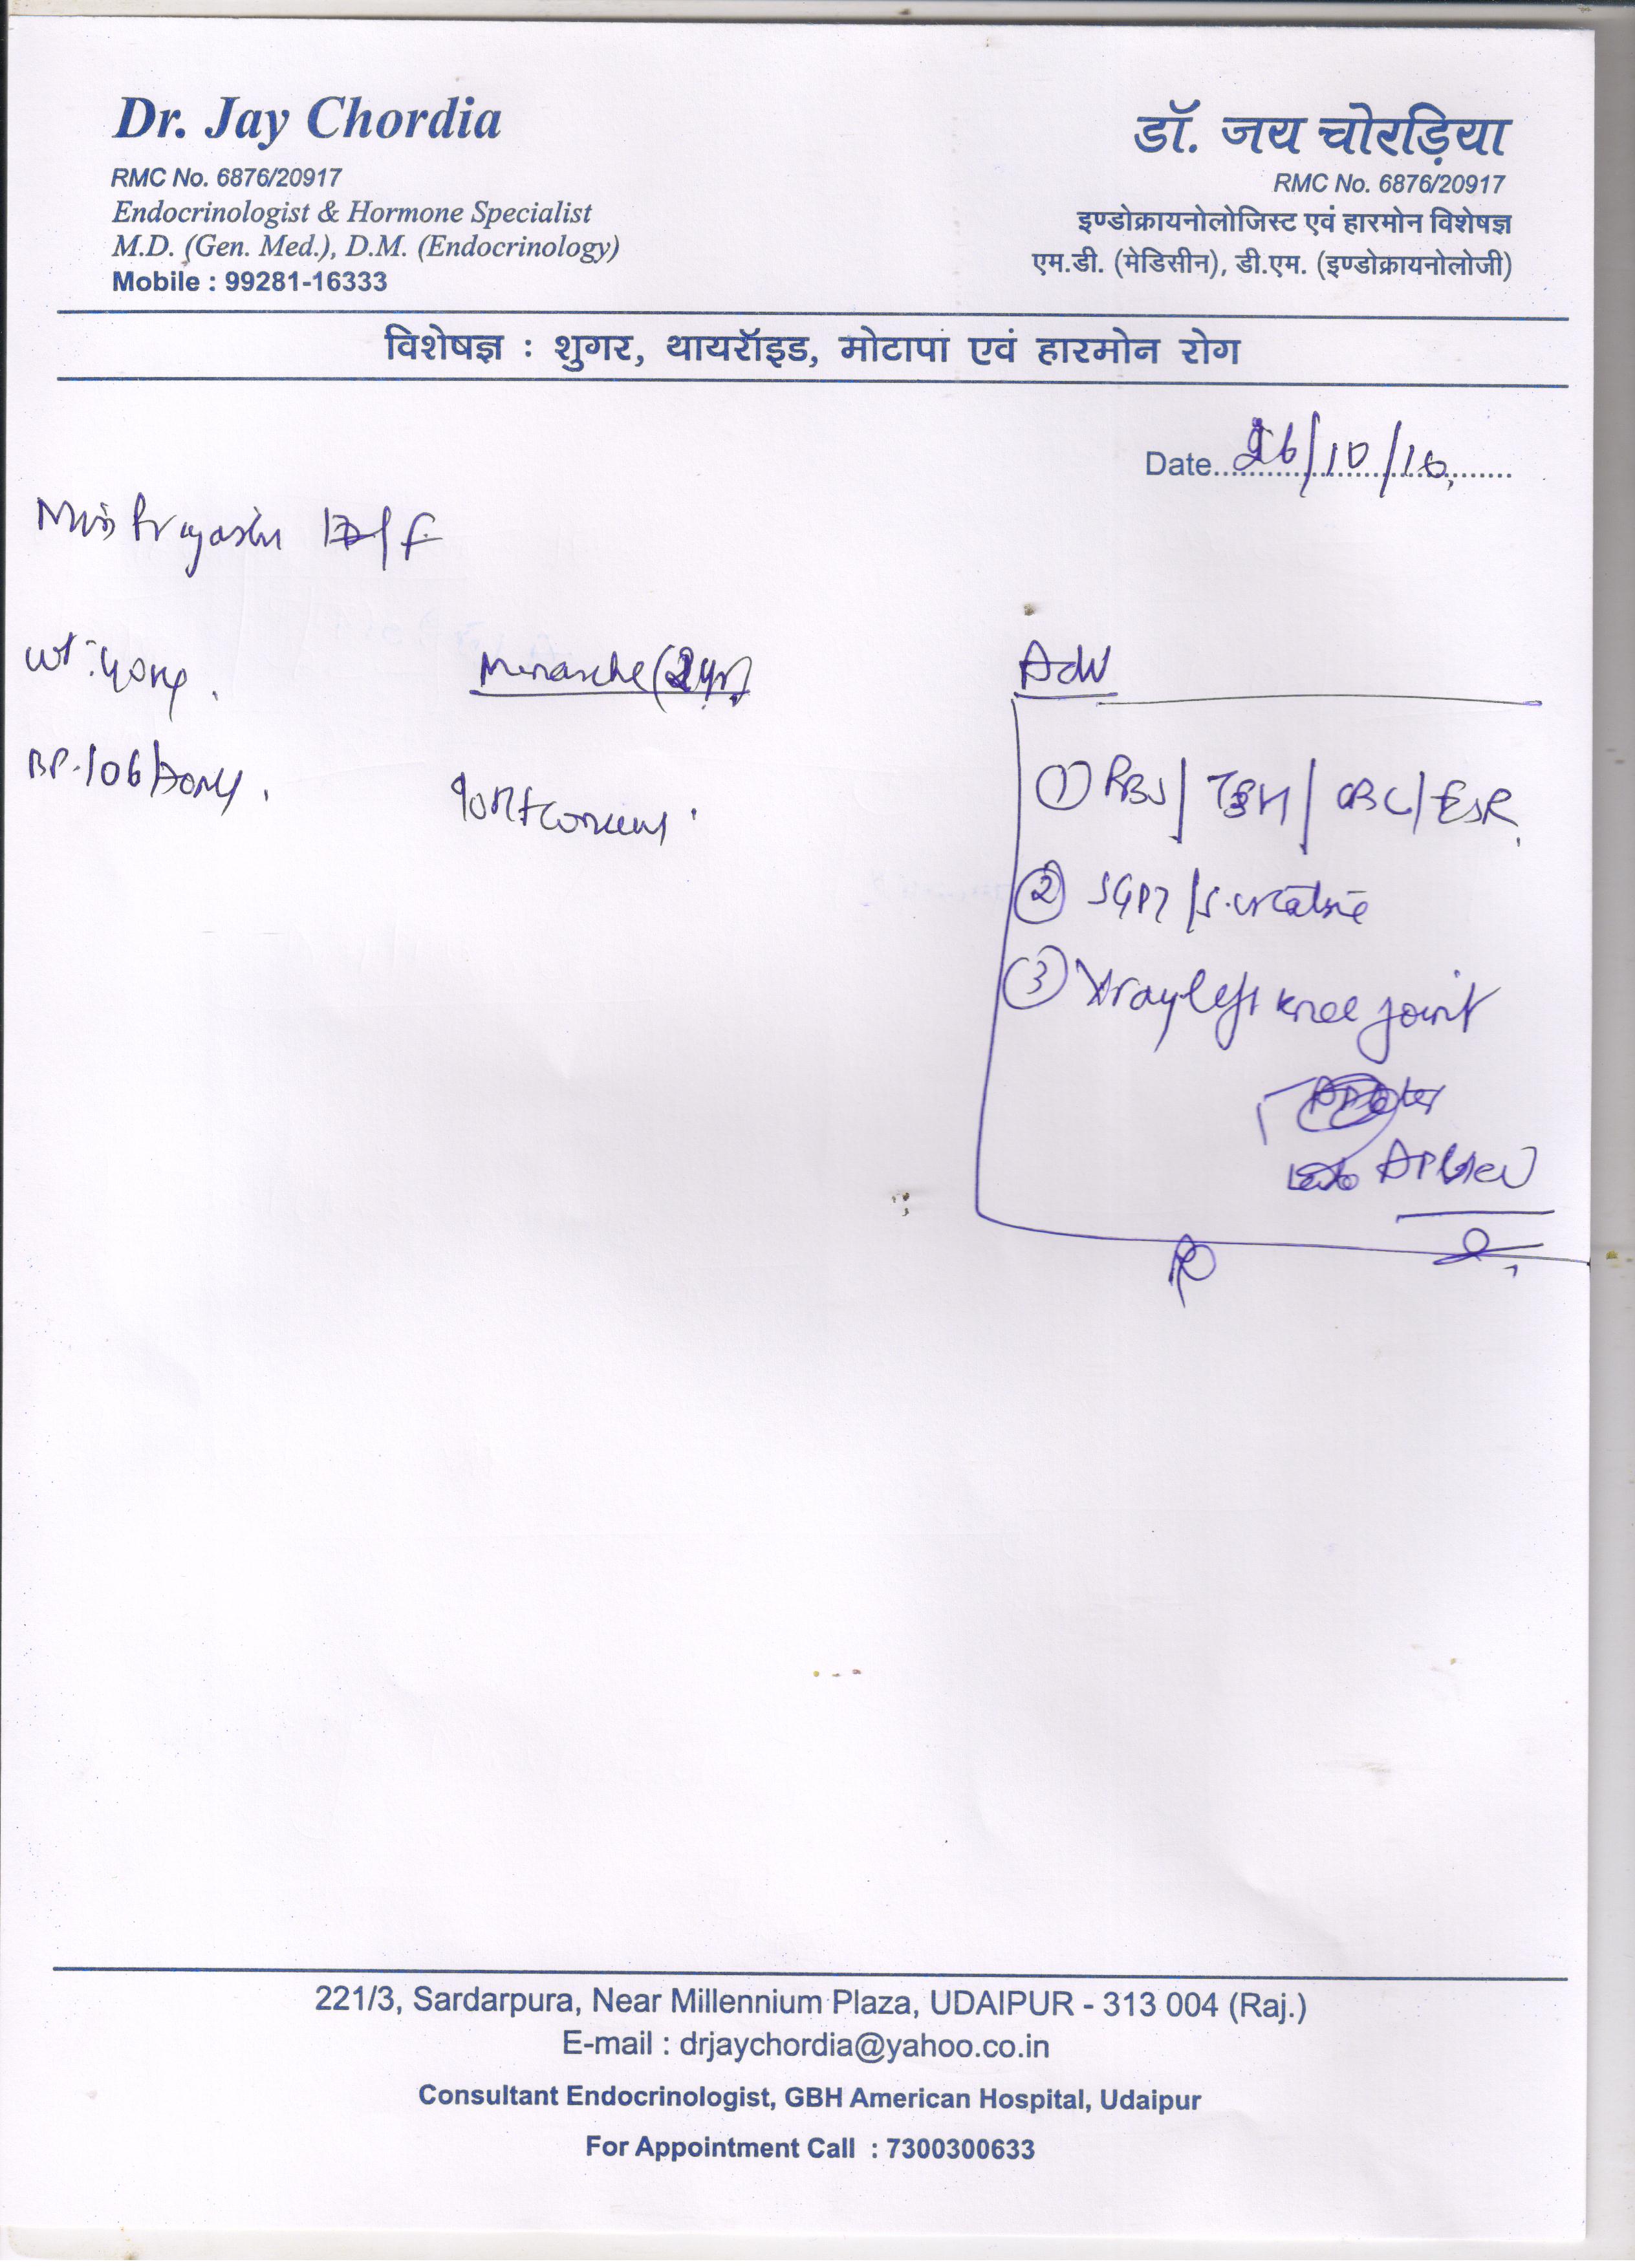 Dr. Jay Chordia
RMC No. 6876/20917
Endocrinologist & Hormone Specialist
M.D. (Gen. Med.), D.M. (Endocrinology)
Mobile : 99281-16333
डॉ. जय चोरड़िया
RMC No. 6876/20917
इण्डोक्रायनोलोजिस्ट एवं हारमोन विशेषज्ञ
एम.डी. (मेडिसीन), डी.एम. (इण्डोक्रायनोलोजी)
विशेषज्ञ : शुगर, थायरॉइड, मोटापा एवं हारमोन रोग
Date 26/10/16
Miss
wt:
Menarche
BP-106/
Adv
① RBS / TSH / CBC / ESR
② SGPT / S. creatinine
③ Xray left knee joint
AP view
221/3, Sardarpura, Near Millennium Plaza, UDAIPUR - 313 004 (Raj.)
E-mail : drjaychordia@yahoo.co.in
Consultant Endocrinologist, GBH American Hospital, Udaipur
For Appointment Call : 7300300633